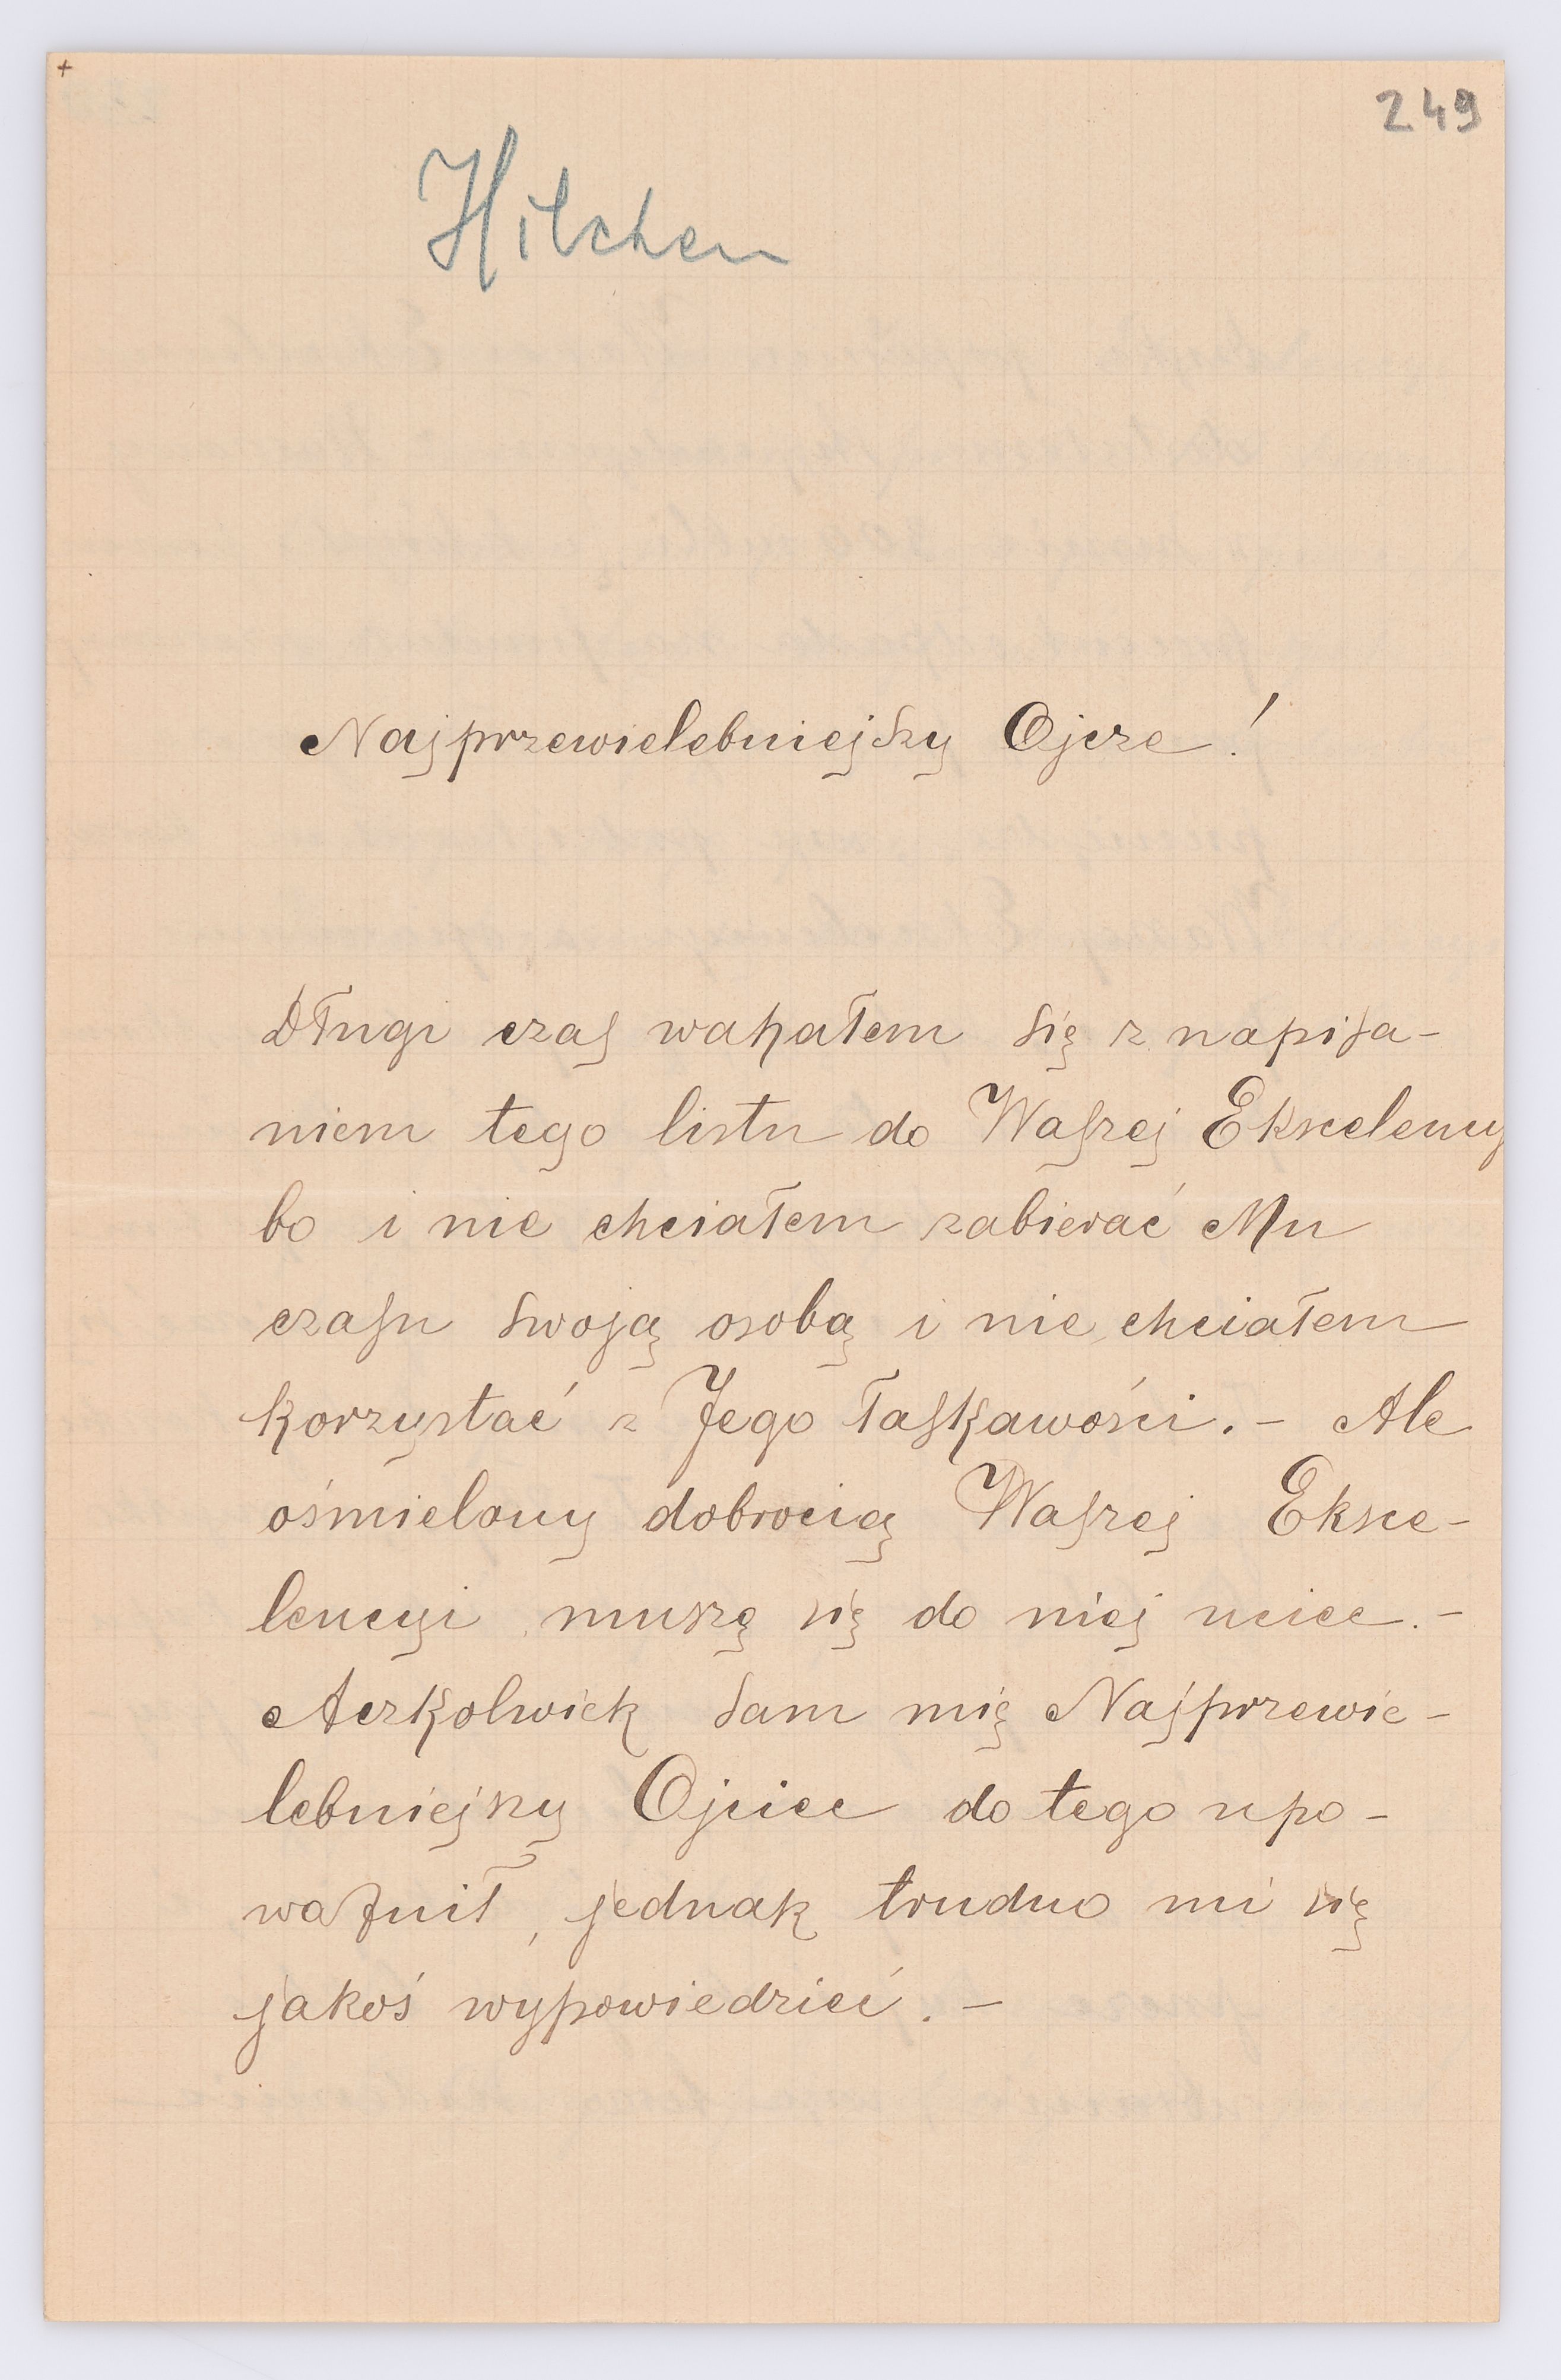 +
249
Hilchen
Najprzewielebniejszy Ojcze!
Długi czas wahałem się z napisa-
niem tego listu do Waszej Ekscelency
bo i nie chciałem zabierać Mu
czasu swoją osobą i nie chciałem
korzystać z Jego łaskawości. - Ale
ośmielony dobrocią Waszej Eksce-
lencyi muszę się do niej uciec. -
Aczkolwiek sam mię Najprzewie-
lebniejszy Ojciec do tego upo-
ważnił, jednak trudno mi się
jakoś wypowiedzieć. -